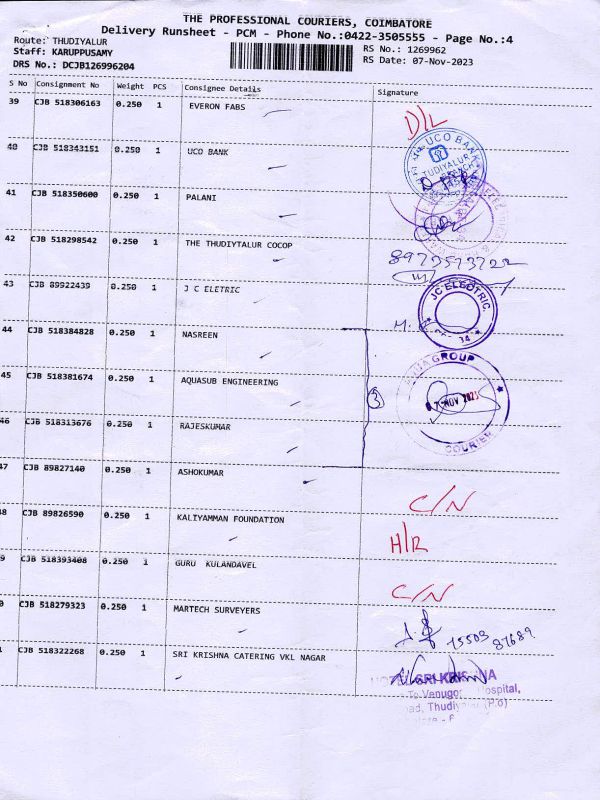 THE PROFESSIONAL COURIERS, COIMBATORE
Delivery Runsheet - PCM - Phone No.:0422-3505555 - Page No.:4
Route: THUDIYALUR
RS No.: 1269962
Staff: KARUPPUSAMY
RS Date: 07-Nov-2023
DRS No.: DCJB126996204
S No Consignment No Weight PCS Consignee Details Signature
39 CJB 518306163 0.250 1 EVERON FABS D/L
40 CJB 518343151 0.250 1 UCO BANK
UCO BANK
TUDIYALUR
41 CJB 518350600 0.250 1 PALANI
42 CJB 518298542 0.250 1 THE THUDIYTALUR COCOP
43 CJB 89922439 0.250 1 J C ELETRIC
JC ELECTRIC
44 CJB 518384828 0.250 1 NASREEN
45 CJB 518381674 0.250 1 AQUASUB ENGINEERING
3
GROUP
07 NOV 2023
COURIER
46 CJB 518313676 0.250 1 RAJESKUMAR
47 CJB 89827140 0.250 1 ASHOKUMAR C/N
48 CJB 89826590 0.250 1 KALIYAMMAN FOUNDATION H/R
9 CJB 518393408 0.250 1 GURU KULANDAVEL C/N
0 CJB 518279323 0.250 1 MARTECH SURVEYERS 15503 87689
CJB 518322268 0.250 1 SRI KRISHNA CATERING VKL NAGAR
SRI KRISHNA
To Venugo Hospital,
ad, Thudiyalur (P.o)